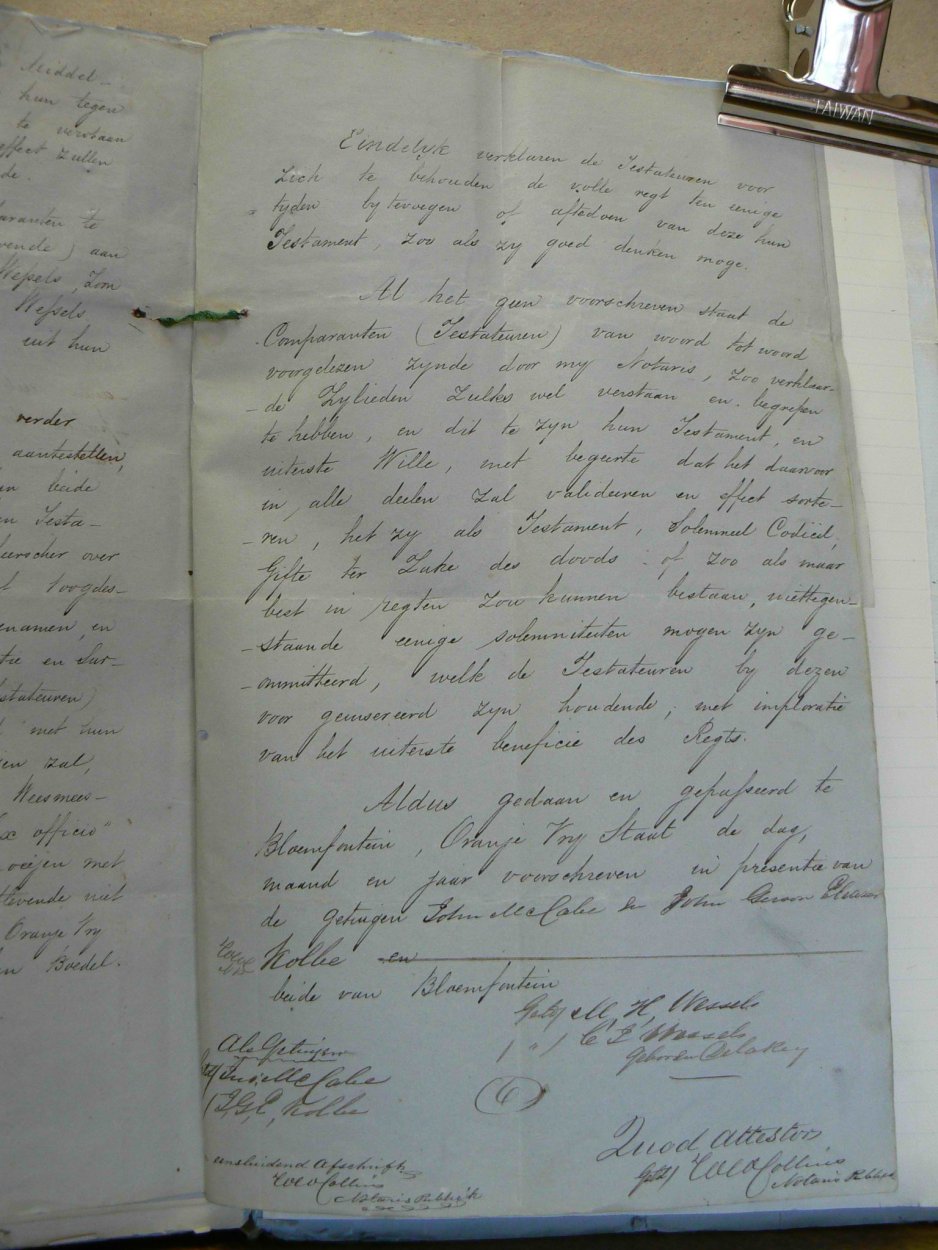 TAIWAN
Middel-
hun tegen
te verstaan
effect zullen
de.
paranten te
vende) aan
Wessels, Zoon
Wessels
uit hun
verder
aantestellen,
beide
Testa-
heerscher over
Voogdes-
enamen, en
en Sur-
stateuren)
met hun
zal,
Weesmees-
officio"
met
levende niet
Oranje Vry
Boedel.
Eindelyk verklaren de Testateuren voor
zich te behouden de volle regt ten eenige
tyden bytevoegen of aftedoen van deze hun
Testament, zoo als zy goed denken moge.
Al het geen voorschreven staat de
Comparanten (Testateuren) van woord tot woord
voorgelezen zynde door my Notaris, zoo verklaar-
-de Zylieden zulks wel verstaan en begrepen
te hebben, en dit te zyn hun Testament, en
uiterste Wille, met begeerte dat het daarvoor
in alle deelen zal valideeren en effect sorte-
-ren, het zy als Testament, Solemneel Codicil,
Gifte ter Zake des doods of zoo als maar
best in regten zou kunnen bestaan, niettegen-
-staande eenige solemniteiten mogen zyn ge-
-ommitteerd, welk de Testateuren by dezen
voor geinsereerd zyn houdende, met imploratie
van het uiterste beneficie des Regts.
Aldus gedaan en gepasseerd te
Bloemfontein, Oranje Vry Staat de dag,
maand en jaar voorschreven in presentie van
de getuigen John McCabe & John
Kolbe en
beide van Bloemfontein
Getk M. H. Wessels
" C E Wessels
Geboren Delakey
Als Getuigen
McCabe
J. G. E. Kolbe
Quod Attestor
Getk Collins
Notaris Publiek
eensluidend Afschrift
Collins
Notaris Publiek